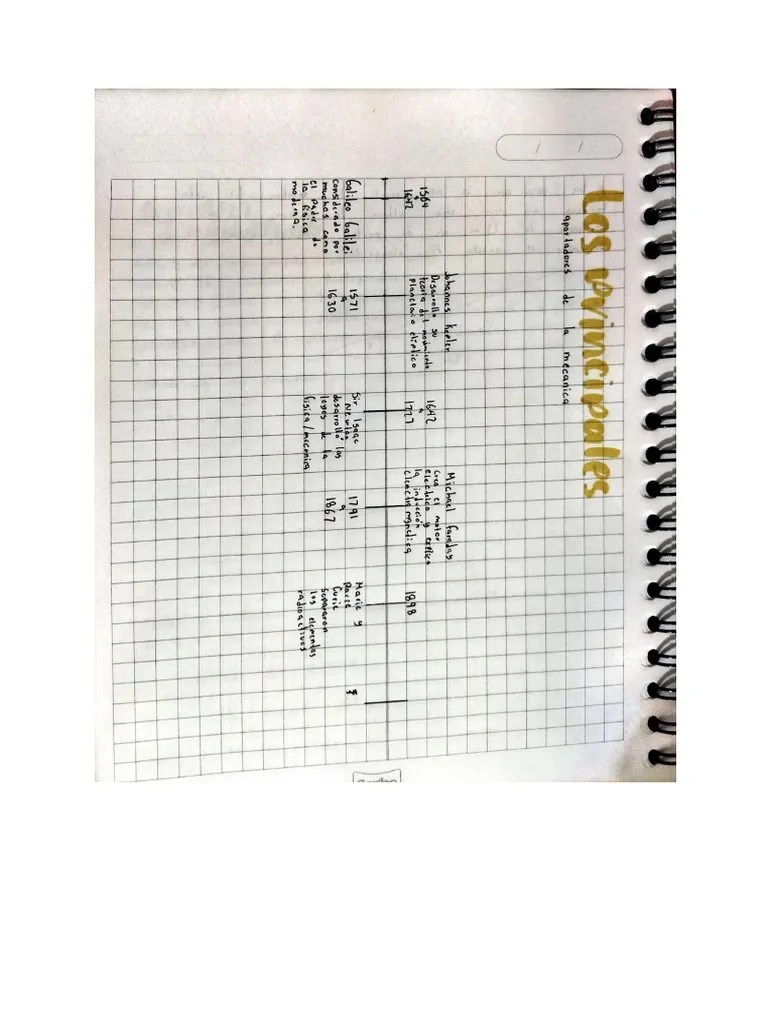 Los principales
aportadores de la mecanica
1564
a
1642
Galileo Galilei
considerado por
muchos como
el padre de
la física
moderna.
Johannes Kepler
Desarrollo su
teoría del movimiento
planetario eliptico
1571
a
1630
1642
a
1727
Sir Isaac
Newton
desarrolló las
leyes de la
física/mecanica
Michael Faraday
crea el motor
electrico y explica
la inducción
1791
a
1867
1898
Marie y
Curie
separaron
los elementos
radioactivos